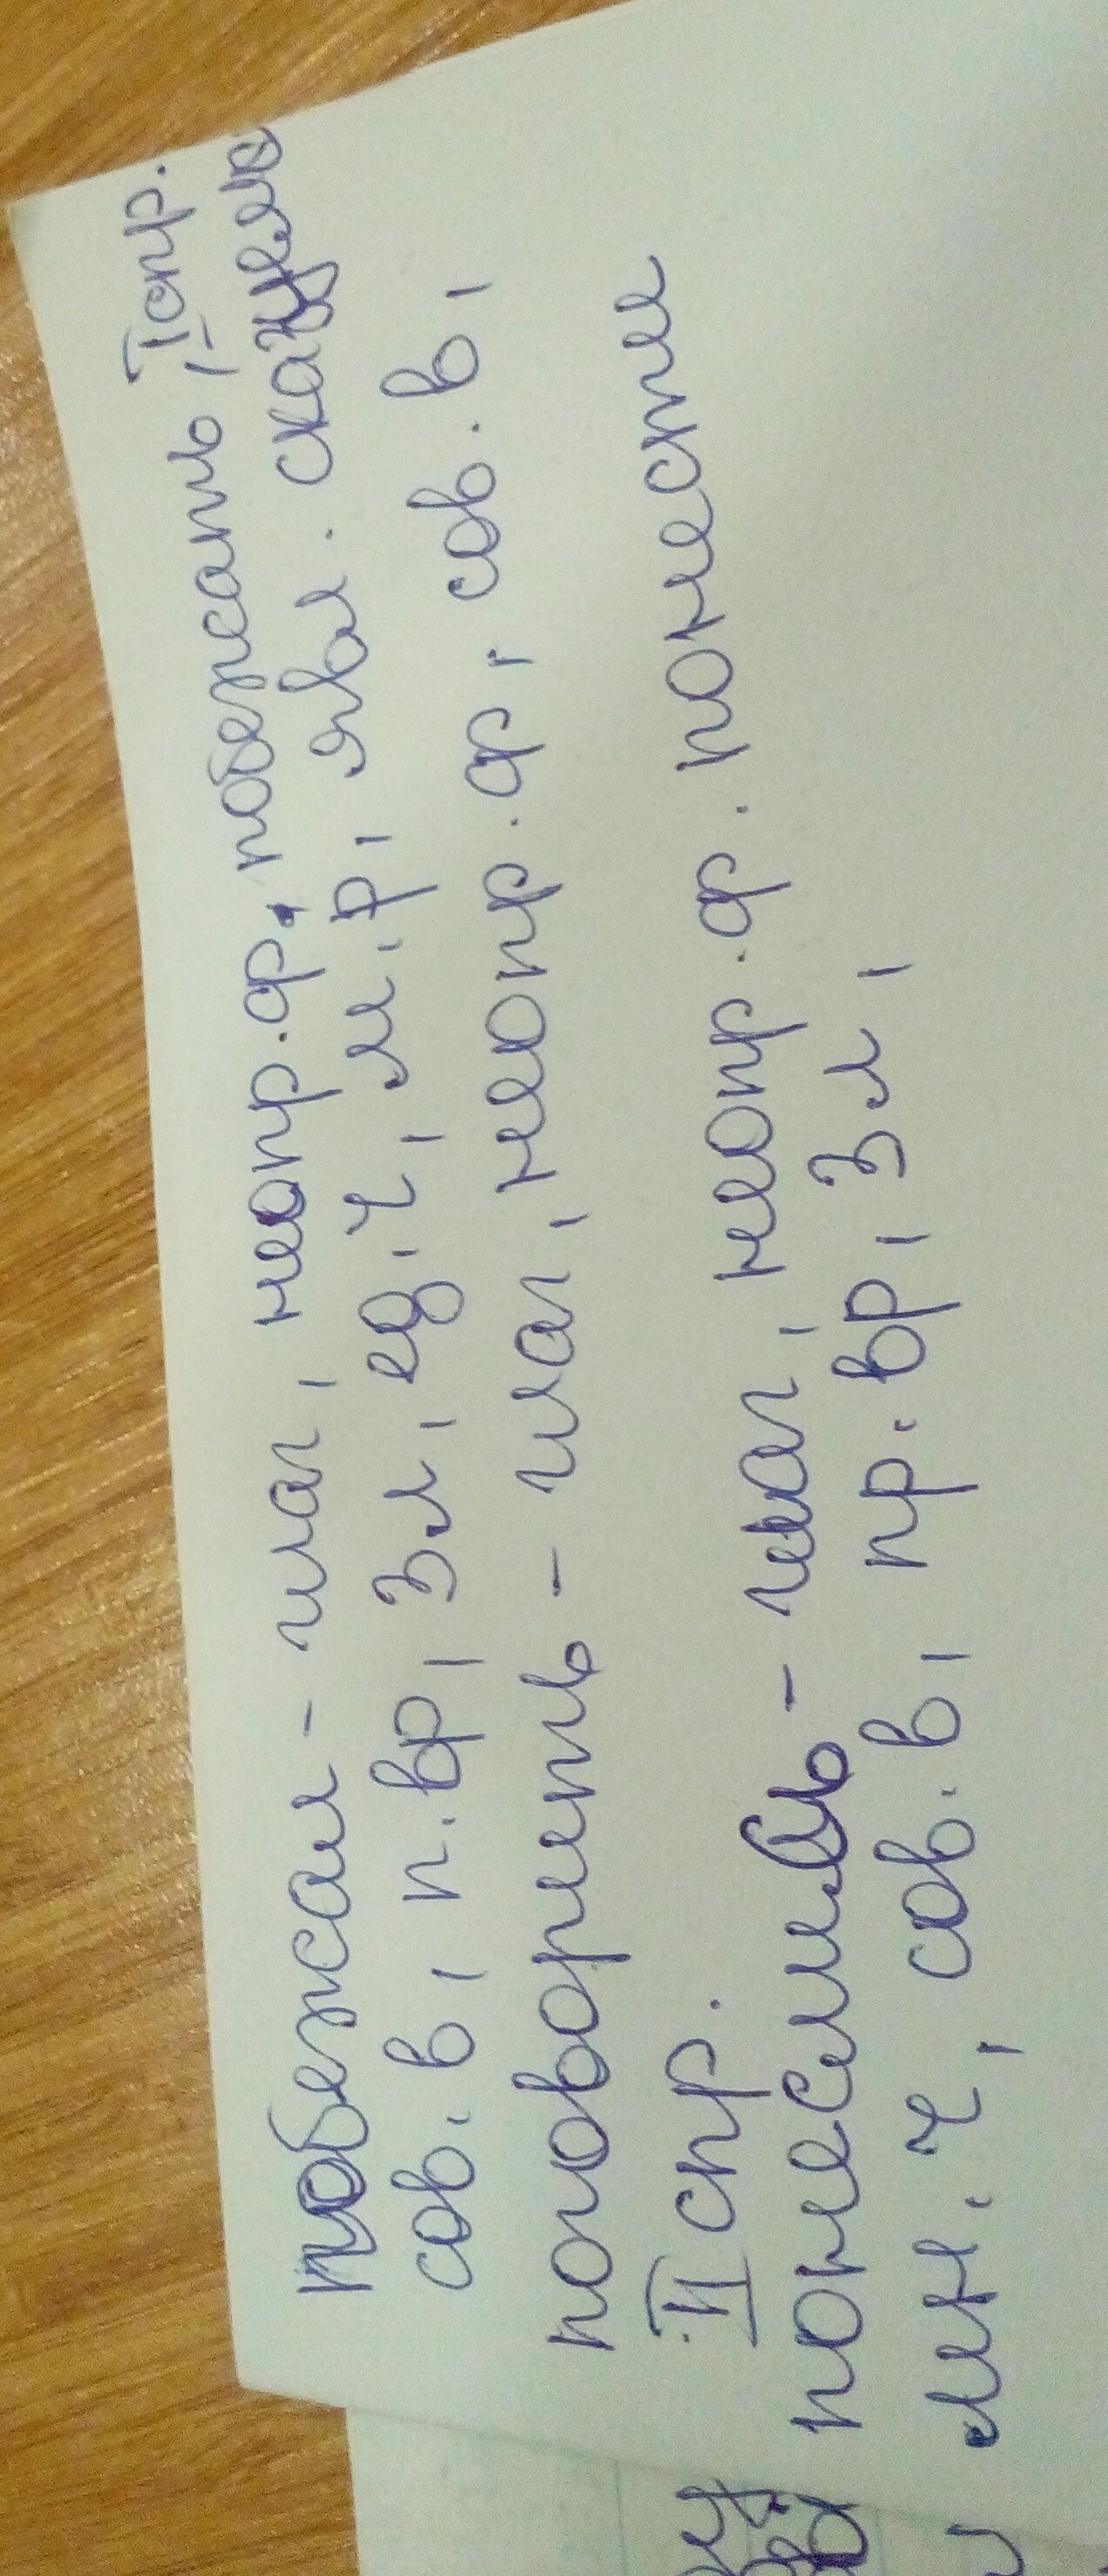 I спр.
побежал - глаг, неопр.ф. побежать,
сов. в, п.вр, 3л, ед.ч, м.р, явл. сказуемо
поговорить - глаг, неопр.ф, сов.в,
II спр.
понеслись - глаг, неопр.ф. понестись
мн.ч, сов.в, пр.вр, 3л,